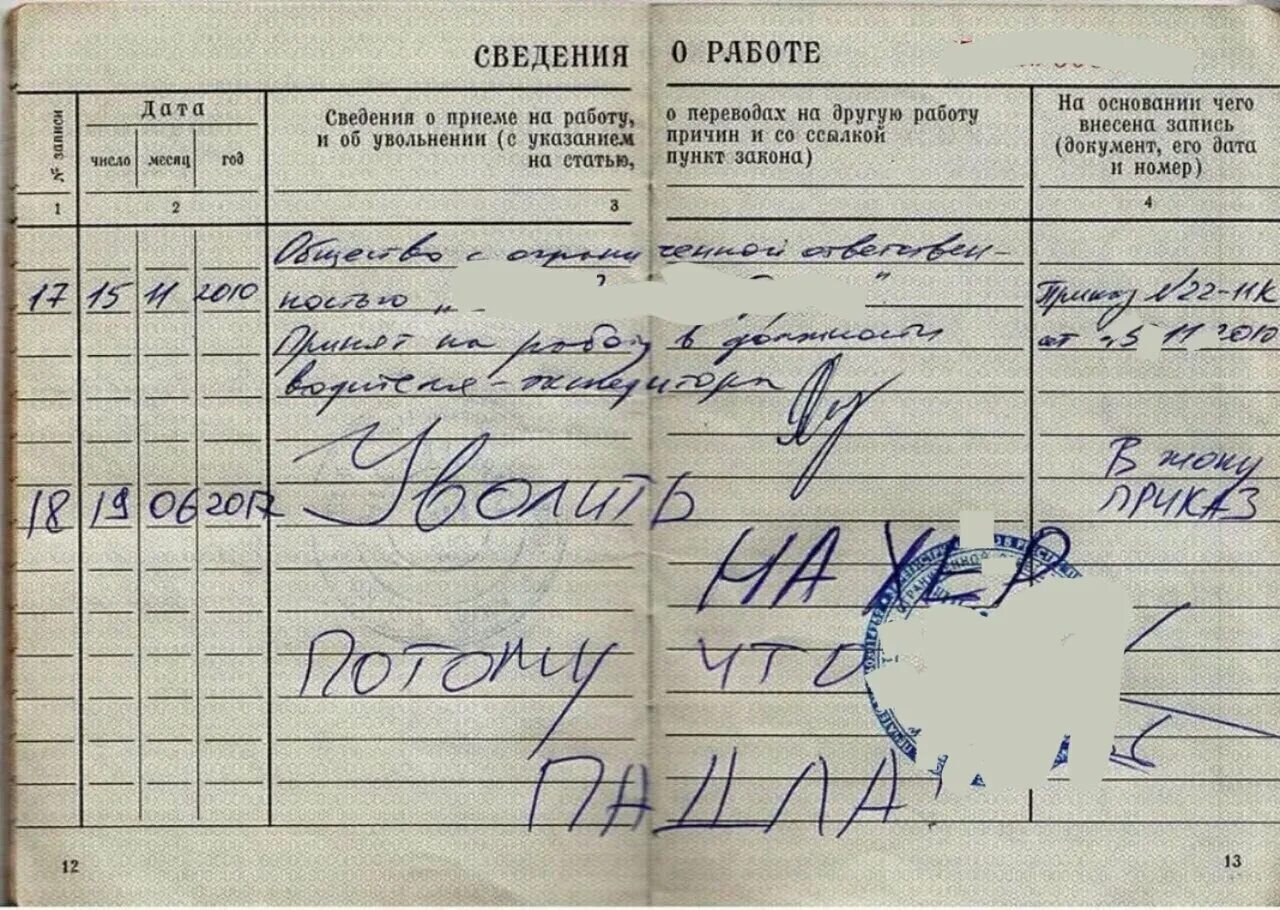 СВЕДЕНИЯ О РАБОТЕ
№ записи
Дата
число месяц год
Сведения о приеме на работу, о переводах на другую работу
и об увольнении (с указанием причин и со ссылкой
на статью, пункт закона)
На основании чего
внесена запись
(документ, его дата
и номер)
1 2 3 4
Общество с ограниченной ответствен-
17 15 11 2010 ностью „ “ Приказ №22-11К
Принят на работу в должности от 11 2010
водителя-экспедитора
В жопу
18 19 06 2017 Уволить ПРИКАЗ
НА ХЕР
ПОТОМУ ЧТО
ПАДЛА
12 13